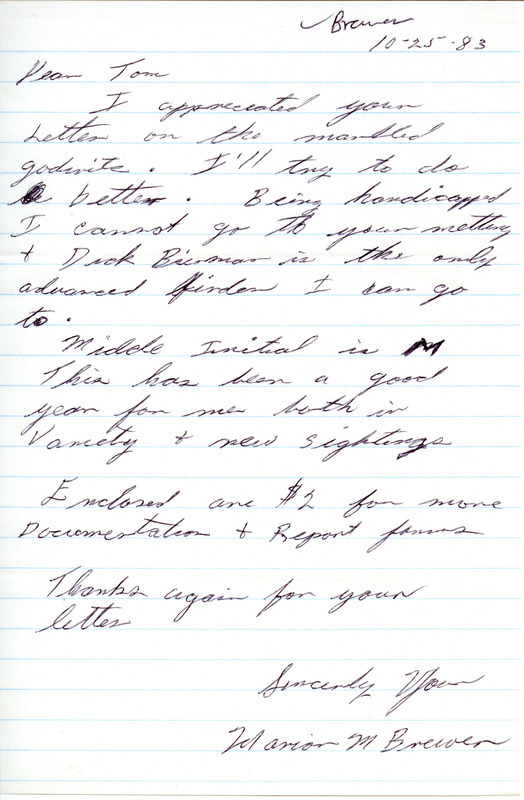 Brewer
10-25-83
Dear Tom
I appreciated your
Letter on the marbled
godwits. I'll try to do
better. Being handicapped
I cannot go to your metting
+ Dick Bierman is the only
advanced birder I can go
to.
Middle Initial is M
This has been a good
year for me both in
Variety + new sightings
Enclosed are $2 for more
Documentation + Report forms
Thanks again for your
letter
Sincerly Your
Marion M Brewer